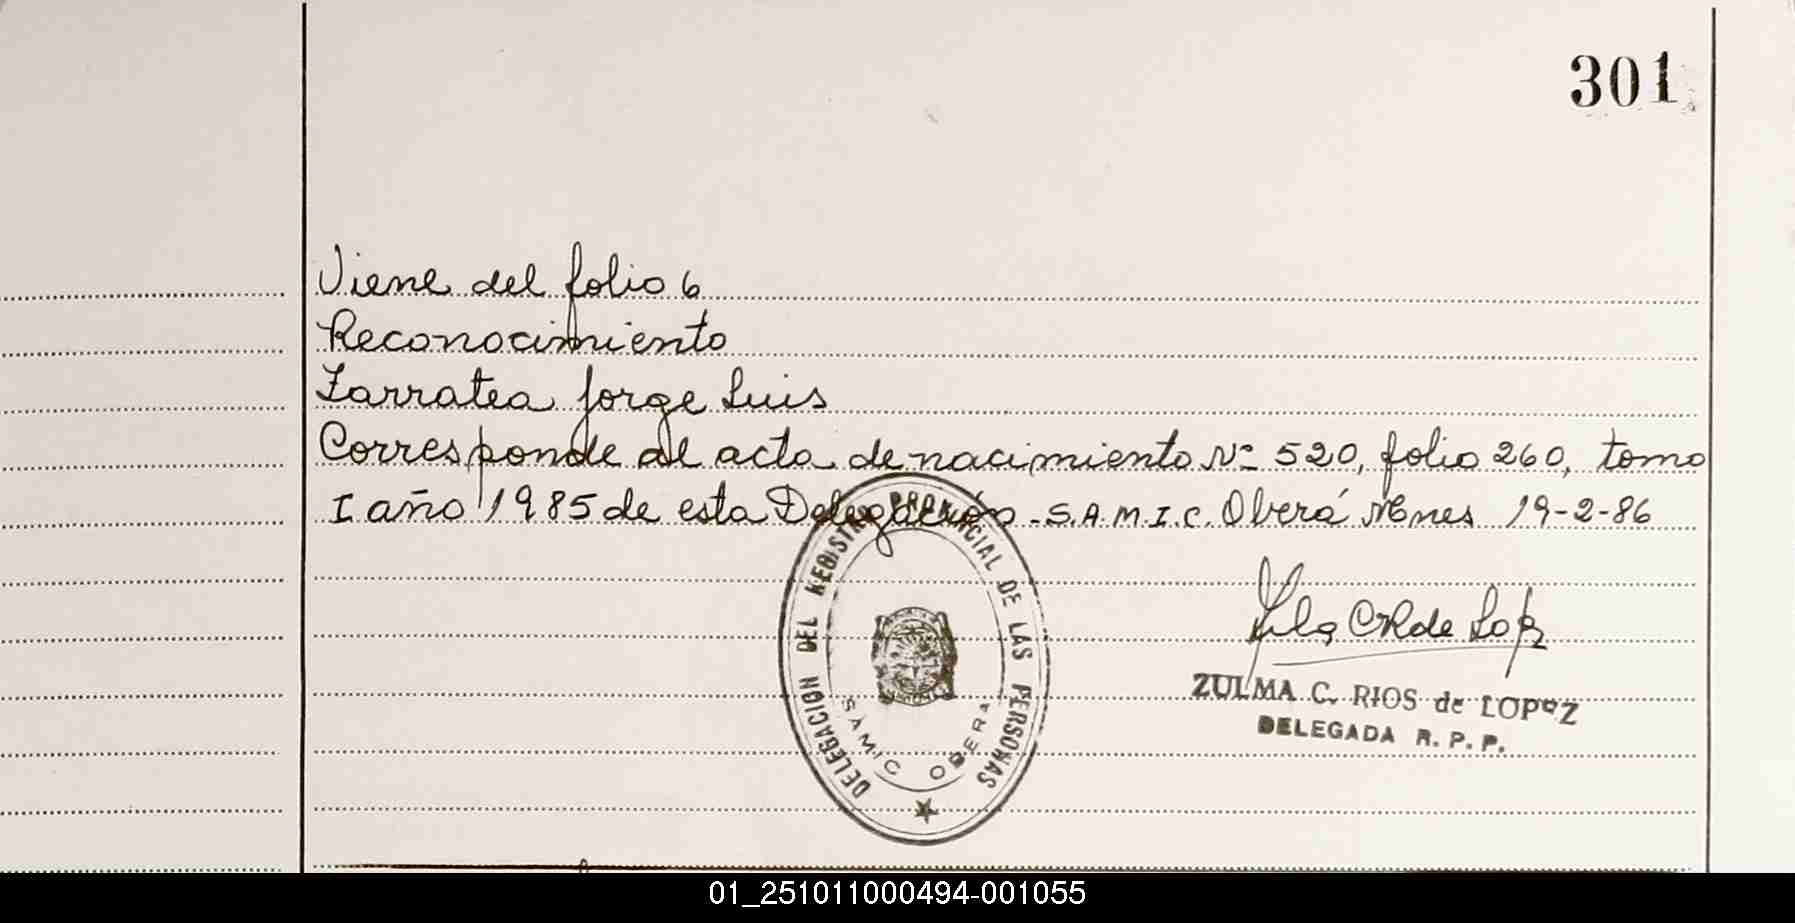 301
Viene del folio 6
Reconocimiento
Zarratea Jorge Luis
Corresponde al acta de nacimiento Nº 520, folio 260, tomo
I año 1985 de esta Delegación - S.A.M.I.C. Oberá Mnes 19-2-86
DELEGACION DEL REGISTRO PROVINCIAL DE LAS PERSONAS
SAMIC OBERA
ZULMA C. RIOS de LOPEZ
DELEGADA R. P. P.
01_251011000494-001055